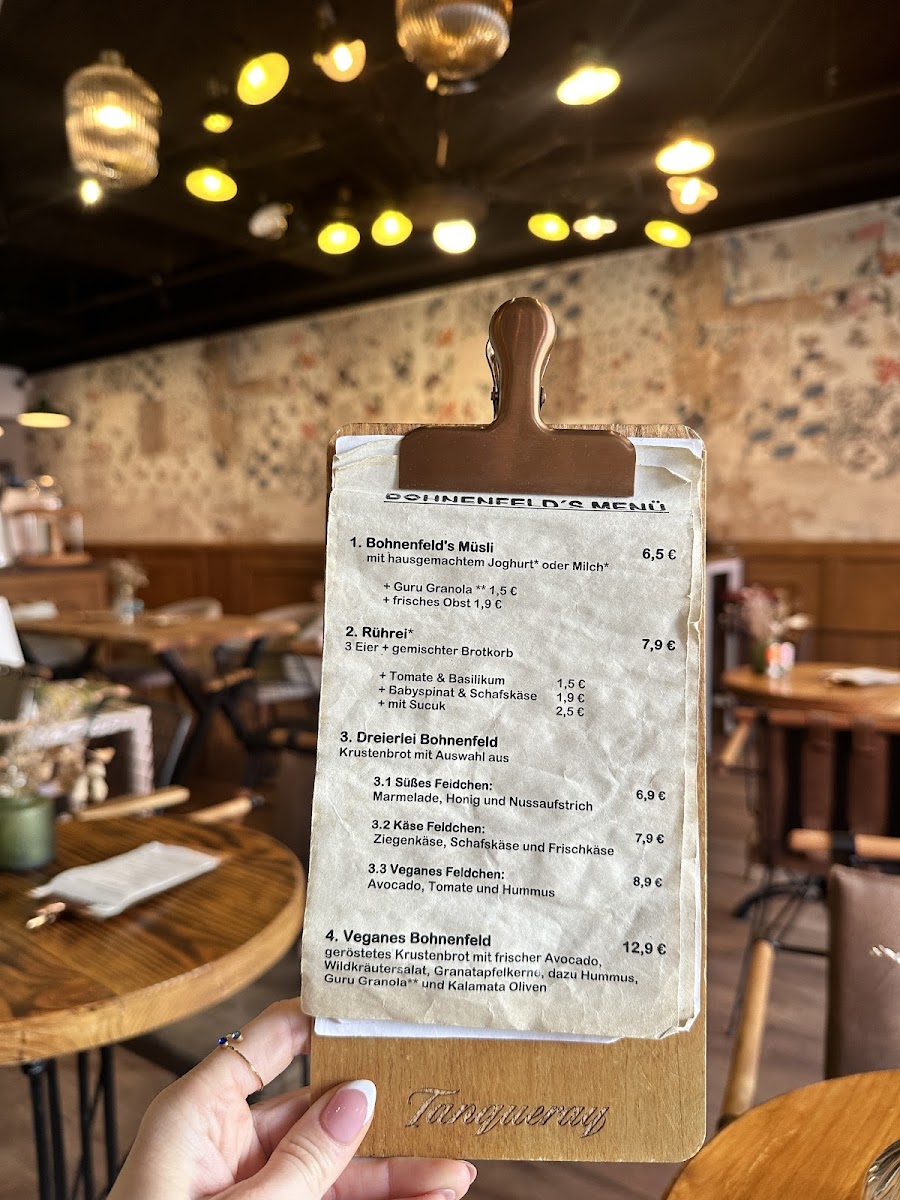 BOHNENFELD´S MENÜ
1. Bohnenfeld's Müsli 6,5 €
mit hausgemachtem Joghurt* oder Milch*
+ Guru Granola ** 1,5 €
+ frisches Obst 1,9 €
2. Rührei* 7,9 €
3 Eier + gemischter Brotkorb
+ Tomate & Basilikum 1,5 €
+ Babyspinat & Schafskäse 1,9 €
+ mit Sucuk 2,5 €
3. Dreierlei Bohnenfeld
Krustenbrot mit Auswahl aus
3.1 Süßes Feldchen: 6,9 €
Marmelade, Honig und Nussaufstrich
3.2 Käse Feldchen: 7,9 €
Ziegenkäse, Schafskäse und Frischkäse
3.3 Veganes Feldchen: 8,9 €
Avocado, Tomate und Hummus
4. Veganes Bohnenfeld 12,9 €
geröstetes Krustenbrot mit frischer Avocado,
Wildkräutersalat, Granatapfelkerne, dazu Hummus,
Guru Granola** und Kalamata Oliven
Tanqueray